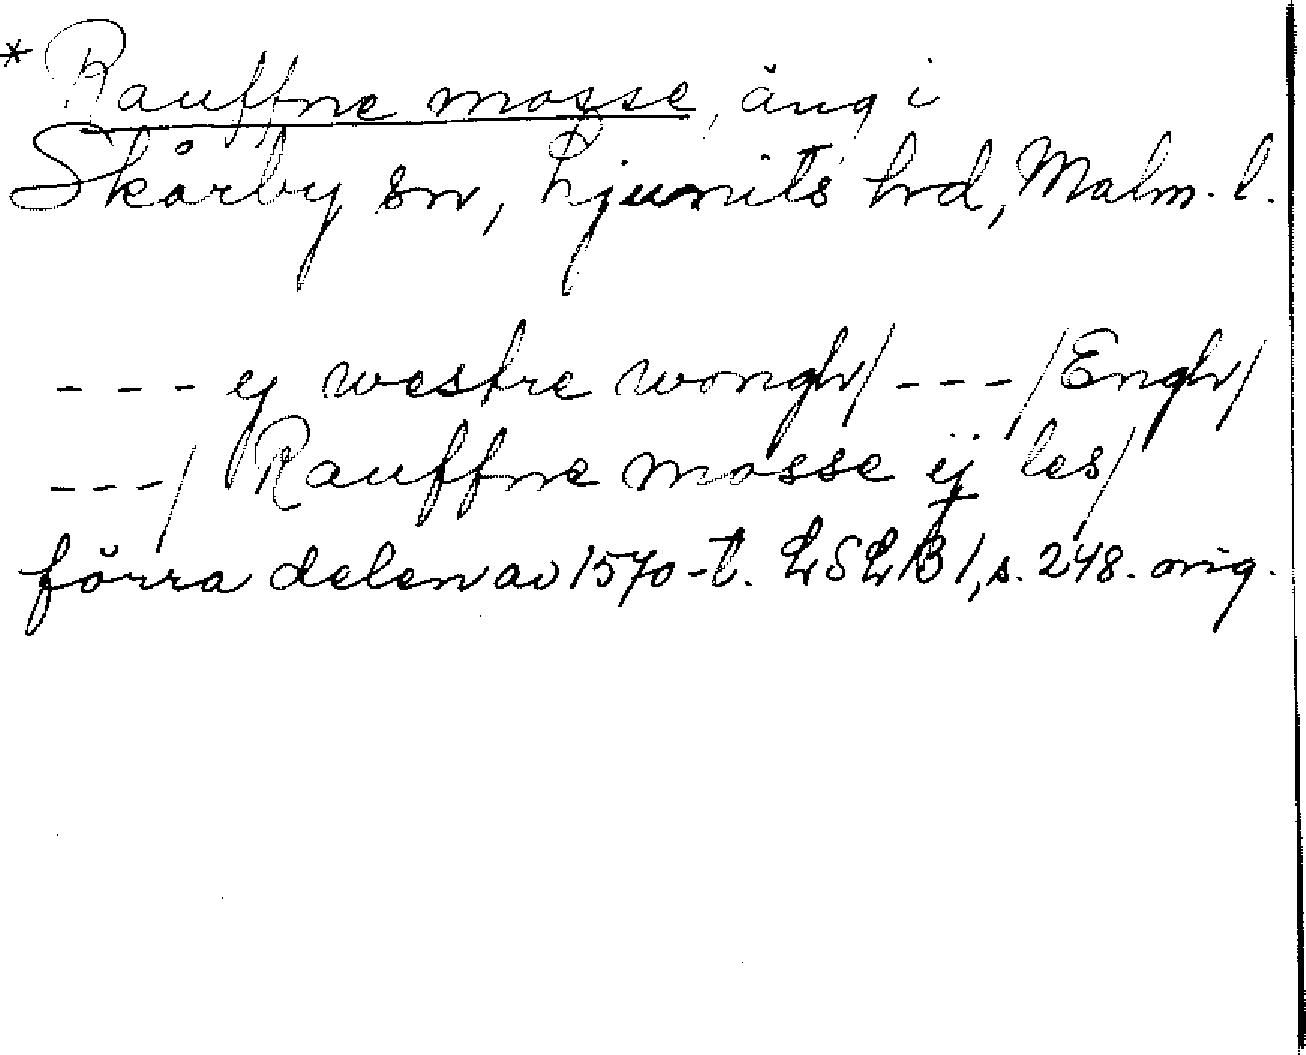 * Rauffne mosse, äng i
Skårby sn, Ljunits hd, Malm. l.
--- ej westre wongh/ --- /Engh/
---/ Rauffne mosse ij les/
förra delen av 1570-t. LSLB 1, s. 248. orig.